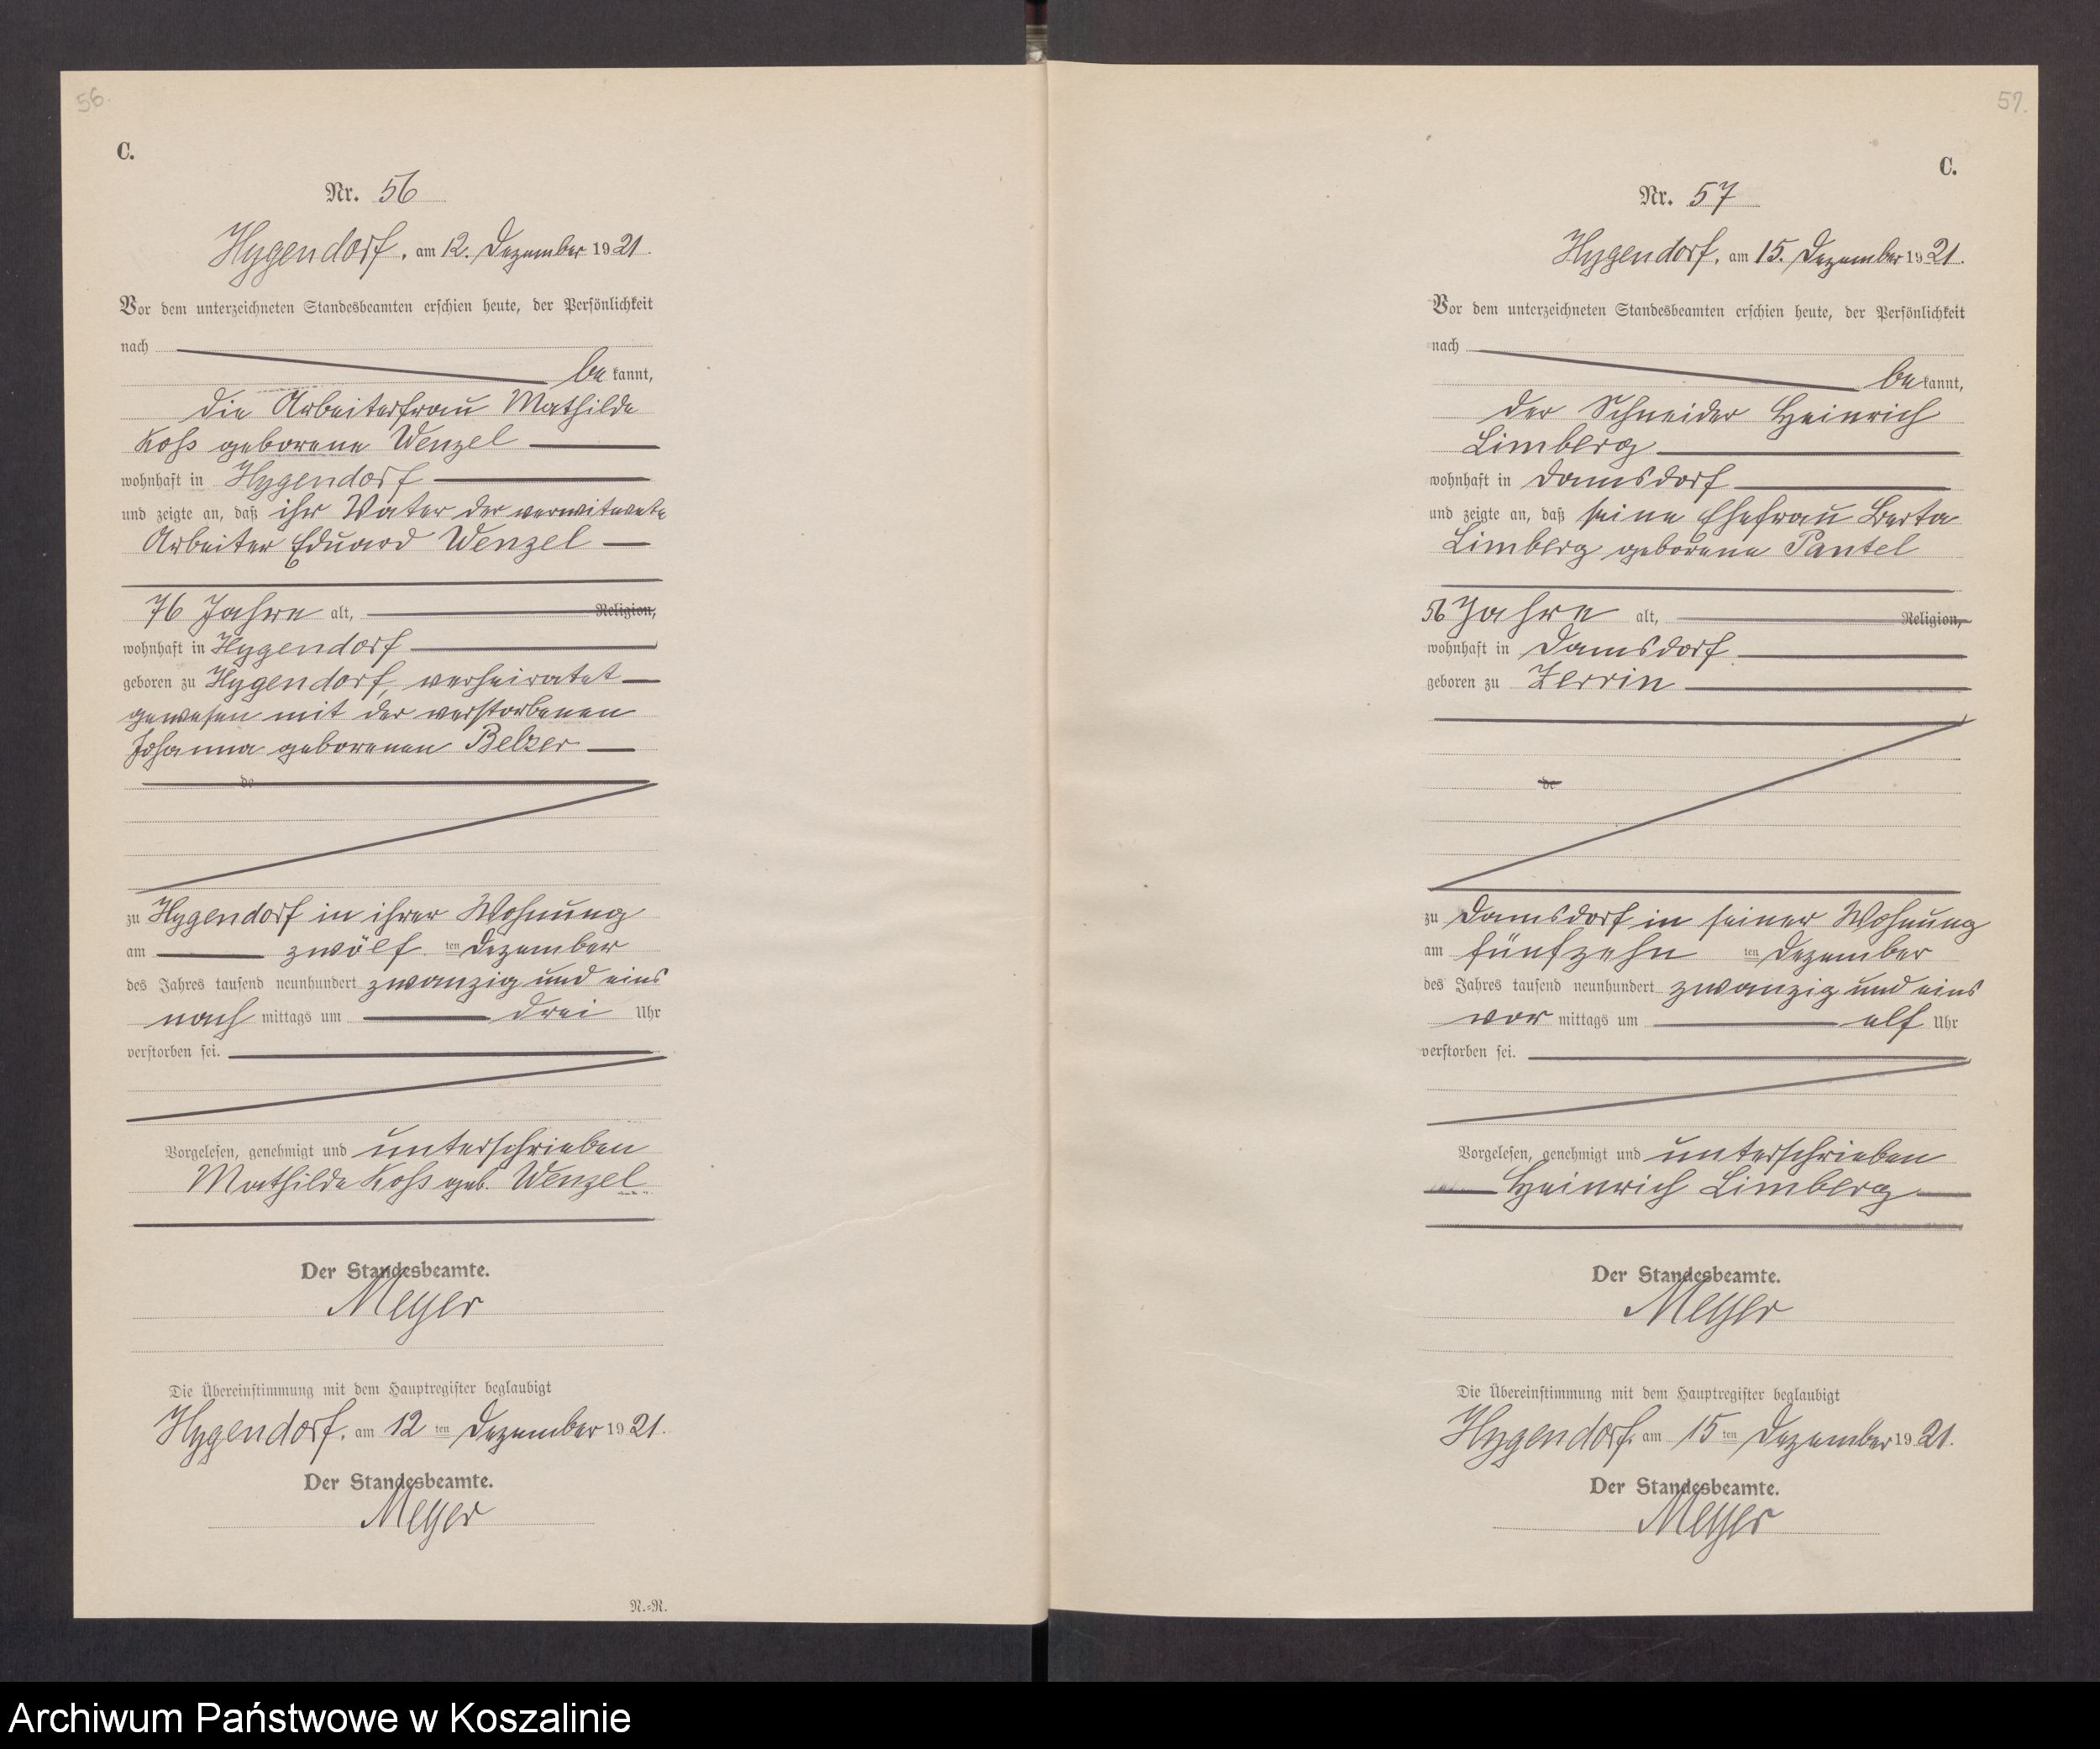 56.
C.
Nr. 56
Hygendorf, am 12. Dezember 1921.
Vor dem unterzeichneten Standesbeamten erschien heute, der Persönlichkeit
nach
be kannt,
die Arbeiterfrau Mathilde
Koss geborene Wenzel
wohnhaft in Hygendorf
und zeigte an, daß ihr Vater der verwitwete
Arbeiter Eduard Wenzel
76 Jahre alt, Religion,
wohnhaft in Hygendorf
geboren zu Hygendorf, verheiratet
gewesen mit der verstorbenen
Johanna geborenen Belzer
de
zu Hygendorf in ihrer Wohnung
am zwölf ten Dezember
des Jahres tausend neunhundert zwanzig und eins
nach mittags um drei Uhr
verstorben sei.
Vorgelesen, genehmigt und unterschrieben
Mathilde Koss geb. Wenzel
Der Standesbeamte.
Meyer
Die Übereinstimmung mit dem Hauptregister beglaubigt
Hygendorf, am 12 ten Dezember 1921.
Der Standesbeamte.
Meyer
R.=R.
57.
C.
Nr. 57
Hygendorf, am 15. Dezember 1921.
Vor dem unterzeichneten Standesbeamten erschien heute, der Persönlichkeit
nach
be kannt,
der Schneider Heinrich
Limberg
wohnhaft in Damsdorf
und zeigte an, daß seine Ehefrau Berta
Limberg geborene Pantel
56 Jahre alt, Religion,
wohnhaft in Damsdorf
geboren zu Zerrin
de
zu Damsdorf in seiner Wohnung
am fünfzehn ten Dezember
des Jahres tausend neunhundert zwanzig und eins
vor mittags um elf Uhr
verstorben sei.
Vorgelesen, genehmigt und unterschrieben
Heinrich Limberg
Der Standesbeamte.
Meyer
Die Übereinstimmung mit dem Hauptregister beglaubigt
Hygendorf, am 15 ten Dezember 1921.
Der Standesbeamte.
Meyer
Archiwum Państwowe w Koszalinie